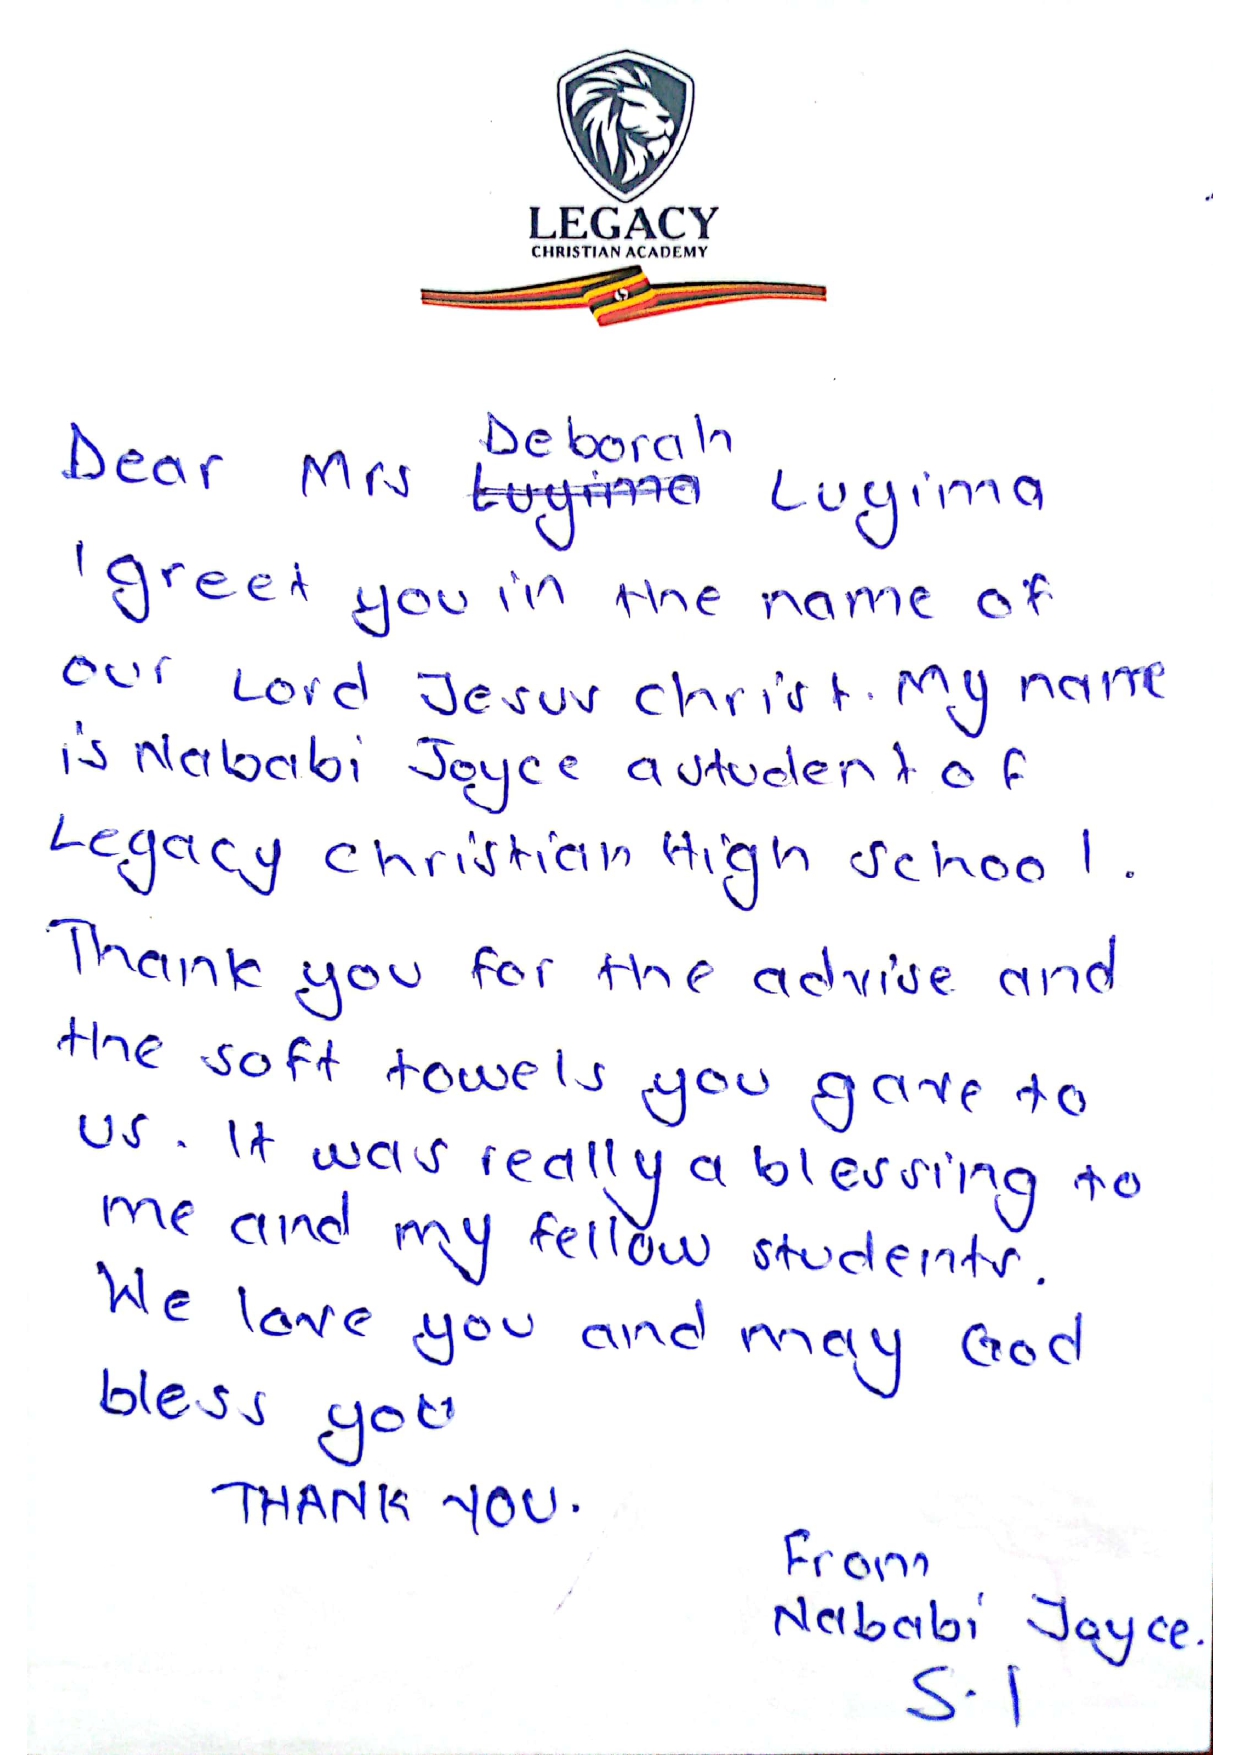 LEGACY
CHRISTIAN ACADEMY
Deborah
Dear Mrs Luyima Luyima
I greet you in the name of
our Lord Jesus Christ. My name
is Nababi Joyce a student of
Legacy Christian High School.
Thank you for the advise and
the soft towels you gave to
us. It was really a blessing to
me and my fellow students.
We love you and may God
bless you
THANK YOU.
From
Nababi Joyce.
S.1